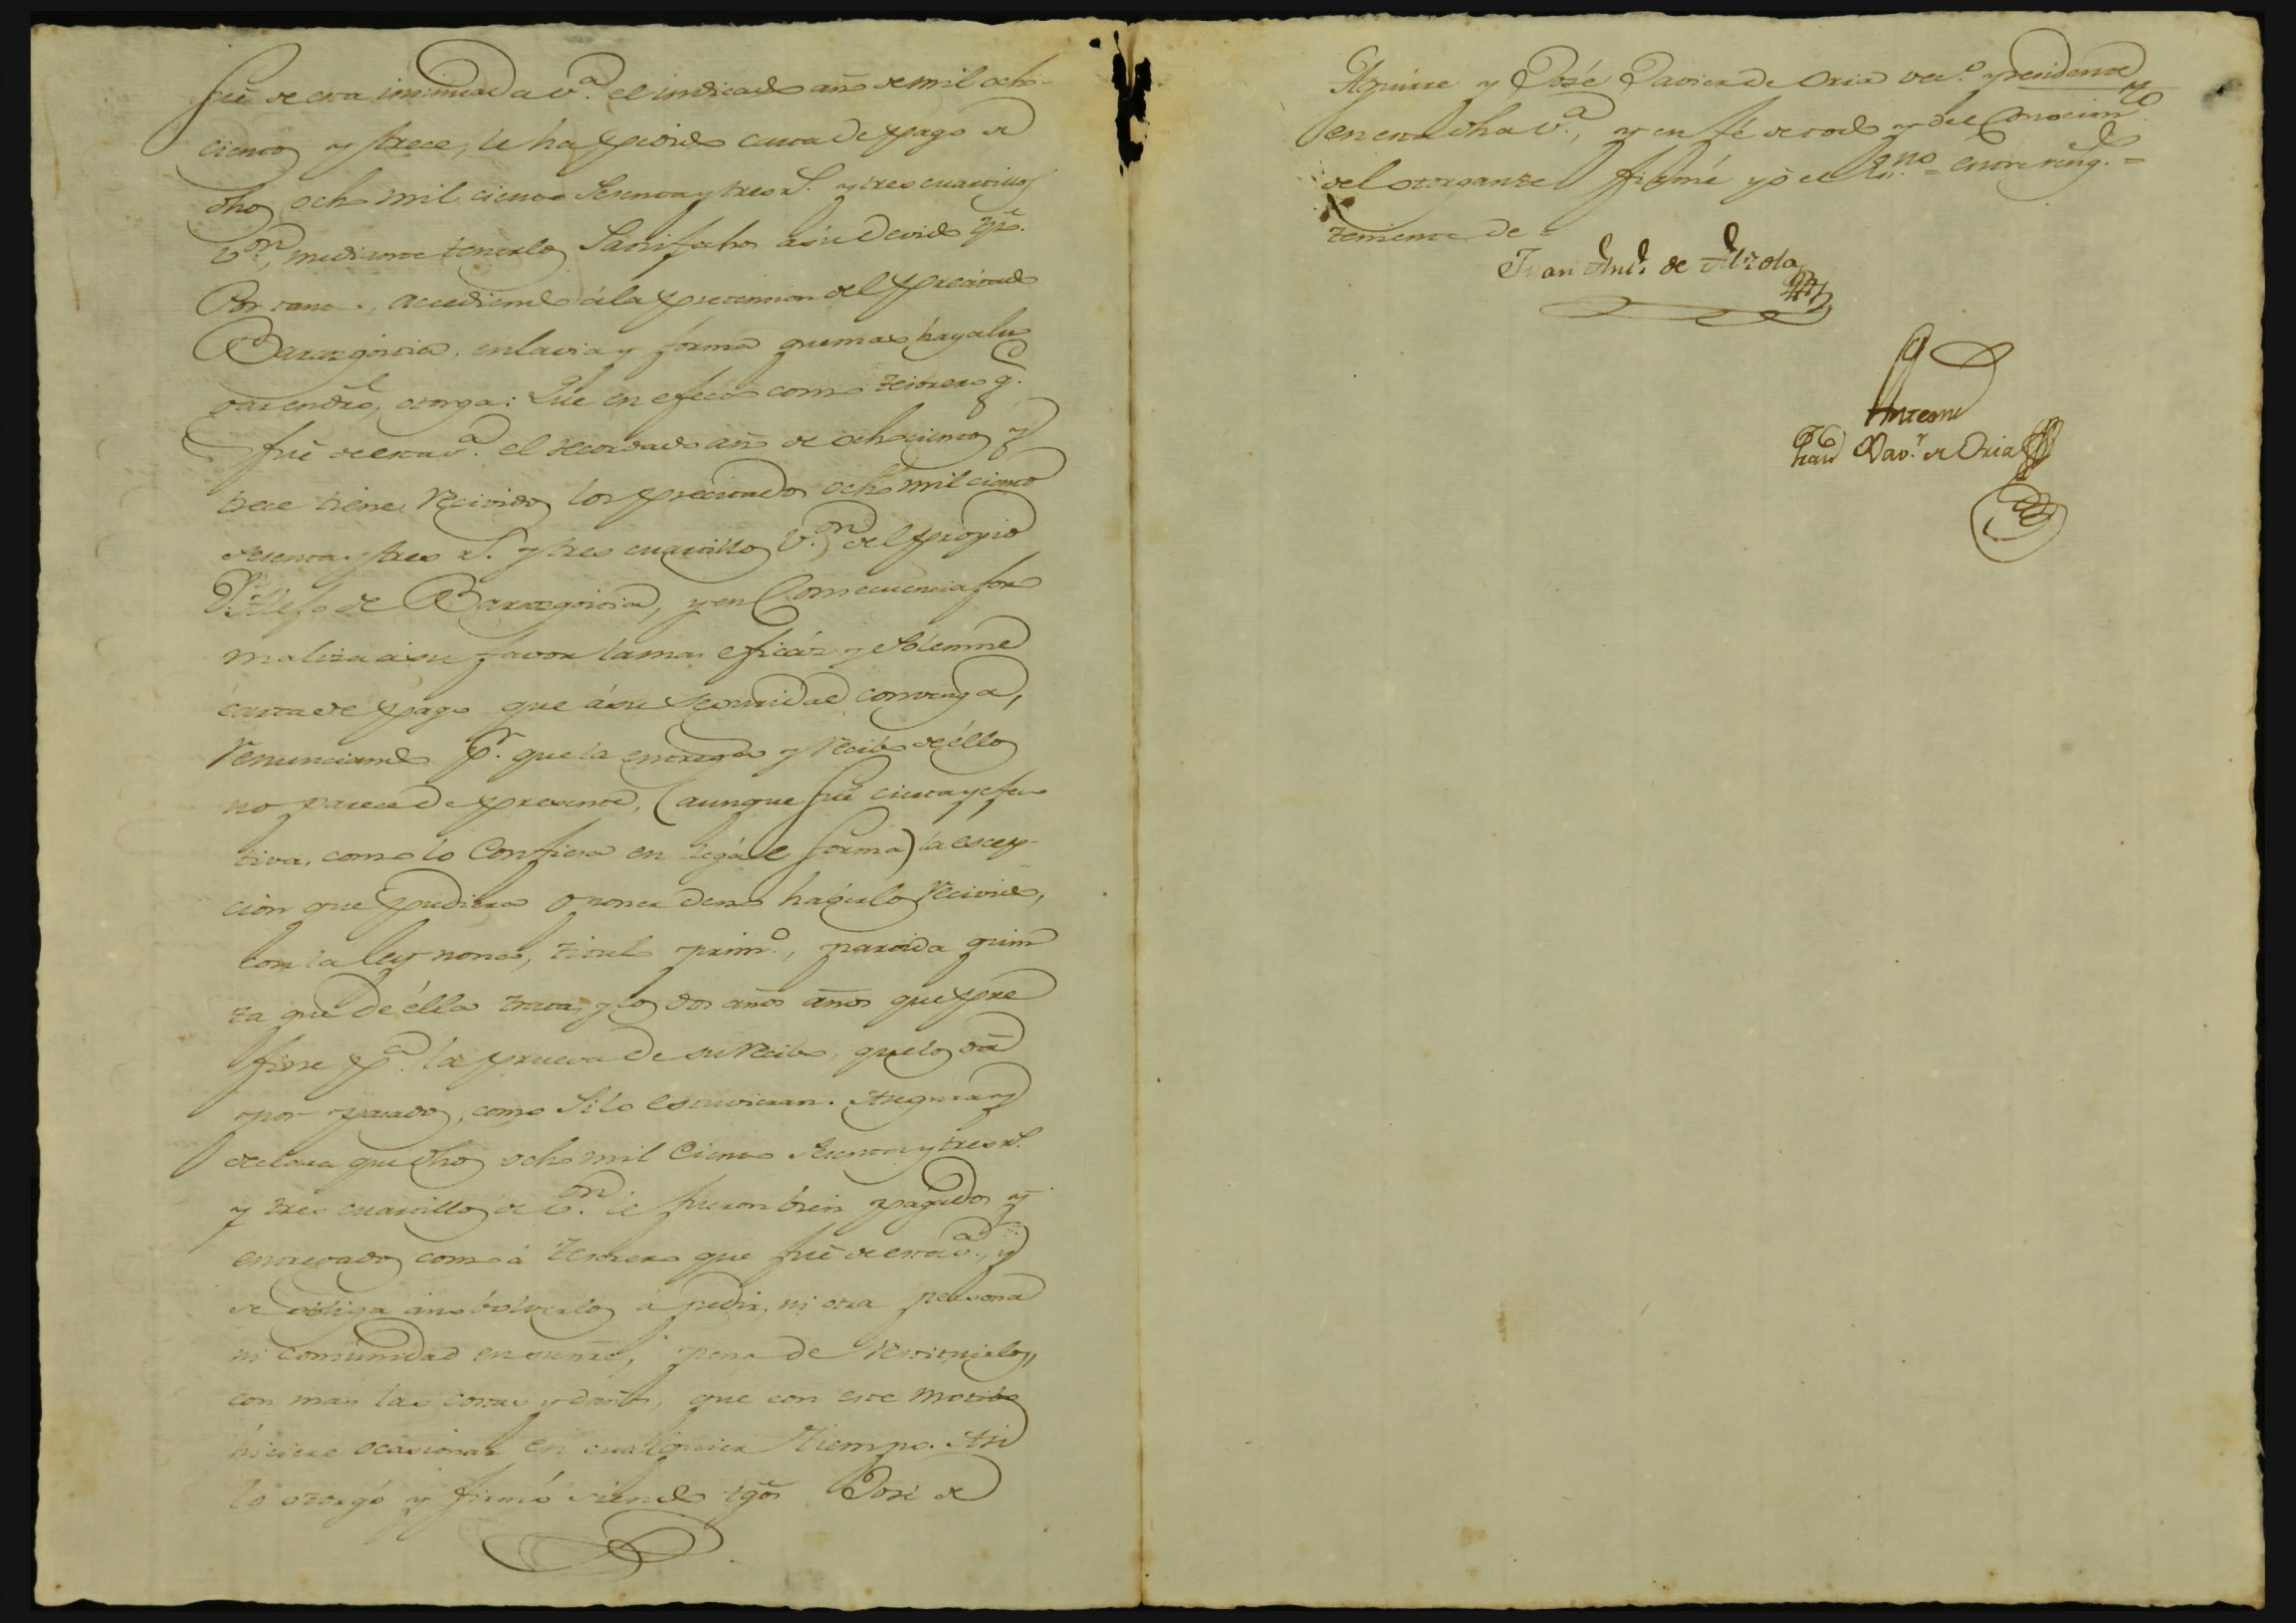 fué de esta insinuada v.ª el indicado año de mil ocho-
cientos y trece, le ha pedido carta de pago de
dhos ocho mil ciento sesenta y tres r.s y tres cuartillos
v.on, mediante tenerlos satisfechos a su devido tpo.
Por tanto, accediendo á la pretension del precitado
Baraegoitia, en la via y forma que mas haya lu-
gar en dro, otorga: Que en efecto como tesorero q.e
fué de esta v.ª el recordado año de ochocientos y
trece tiene recividos los precitados ocho mil ciento
sesenta y tres r.s y tres cuartillos v.on del propio
D.n de Baraegoitia, y en consecuencia for
maliza á su favor la mas eficáz y solemne
carta de pago que á su seguridad convenga,
renunciando p.r que la entrega y recibo de éllos
no parece de presente, (aunque fué cierta y efec
tiva, como lo confiesa en legál forma) la escep-
cion que pudiera oponer de no haberlos recivido,
con la ley nona, titulo prim.o, partida quin
ta que de élla trata, y los dos años años que pre
fine p.ª la prueva de su recibo, que los dá
por pasados, como si lo estuvieran. Asegura y
declara que dhos ocho mil ciento sesenta y tres r.s
y tres cuartillos de v.on le fueron bien pagados y
entregados como á tesorero que fué de esta v.ª, y
se obliga á no bolverlos á pedir, ni otra persona
ni comunidad en su nre, pena de restituirlos,
con mas las costas y daños, que con este motibo
hiciere ocasionar en cualquier tiempo. Asi
lo otorgó y firmó siendo tgos José de
Aguirre y José Xavier de Oria vec.s y residente
en esta dha v.ª, y en fé de todo y del conocim.to
del otorgante firmé yo el Es.no = entre reng.do =
Juan Ant.o de Alzola
Ante mi
Xav.r de Oria